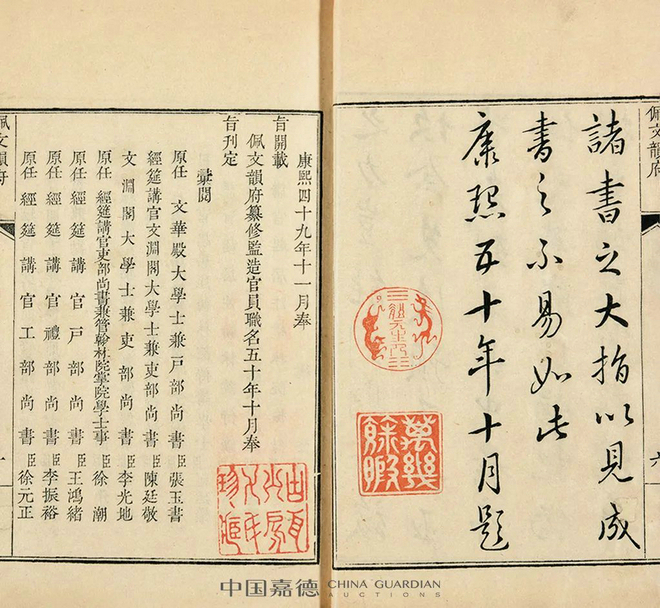 佩文韻府
六
諸書之大指以見成
書之不易如此
康熙五十年十月題
體元主人
萬幾餘暇
康熙四十九年十一月奉
旨開載
佩文韻府纂修監造官員職名五十年十月奉
旨刊定
彙閱
原任文華殿大學士兼戶部尚書臣張玉書
經筵講官文淵閣大學士兼吏部尚書臣陳廷敬
文淵閣大學士兼吏部尚書臣李光地
原任經筵講官吏部尚書兼管翰林院掌院學士事臣徐潮
原任經筵講官戶部尚書臣王鴻緒
原任經筵講官禮部尚書臣李振裕
原任經筵講官工部尚書臣徐元正
佩文韻府
中国嘉德 CHINA GUARDIAN
AUCTIONS